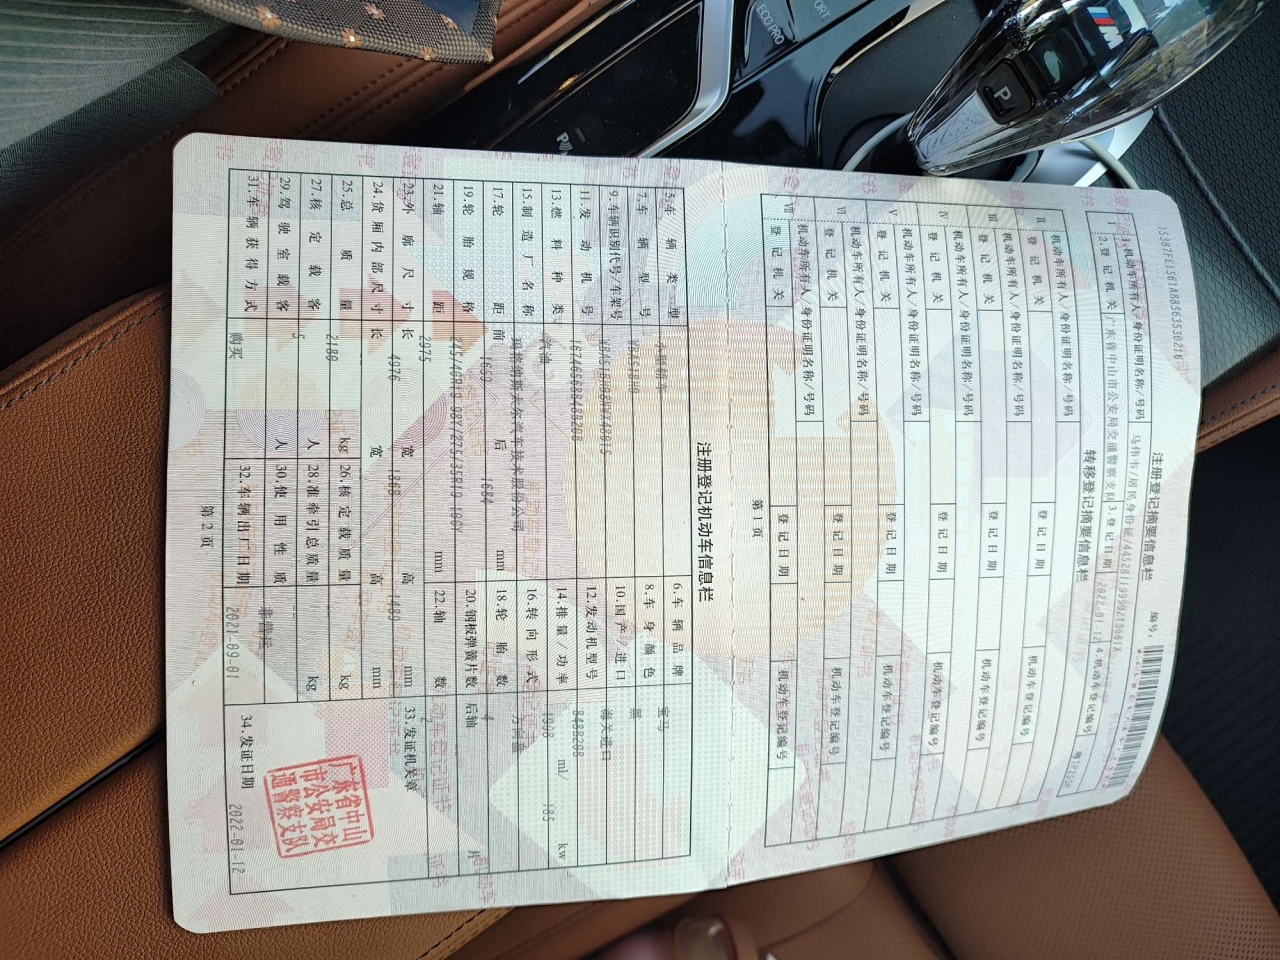 注册登记摘要信息栏
编号:
1.机动车所有人/身份证明名称/号码
2.登记机关 广东省中山市公安局交通警察支队 3.登记日期 2022-01-12 4.机动车登记编号
转移登记摘要信息栏
Ⅱ 机动车所有人/身份证明名称/号码
登记机关 登记日期 机动车登记编号
Ⅲ 机动车所有人/身份证明名称/号码
登记机关 登记日期 机动车登记编号
Ⅳ 机动车所有人/身份证明名称/号码
登记机关 登记日期 机动车登记编号
Ⅴ 机动车所有人/身份证明名称/号码
登记机关 登记日期 机动车登记编号
Ⅵ 机动车所有人/身份证明名称/号码
登记机关 登记日期 机动车登记编号
Ⅶ 机动车所有人/身份证明名称/号码
登记机关 登记日期 机动车登记编号
第1页
注册登记机动车信息栏
5.车辆类型 6.车辆品牌 宝马
7.车辆型号 8.车身颜色 黑
9.车辆识别代号/车架号 10.国产/进口 海关进口
11.发动机号 12.发动机型号
13.燃料种类 汽油 14.排量/功率 1998 ml/ 185 kw
15.制造厂名称 玛格纳斯太尔汽车技术股份公司 16.转向形式 方向盘
17.轮距 前 后 1684 mm 18.轮胎数 4
19.轮胎规格 20.钢板弹簧片数 后轴 片
21.轴距 2975 mm 22.轴数 2
23.外廓尺寸 长 4976 宽 1868 高 mm 33.发证机关章
24.货厢内部尺寸 长 宽 高 mm
25.总质量 2180 kg 26.核定载质量 kg
27.核定载客 5 人 28.准牵引总质量 kg
29.驾驶室载客 人 30.使用性质 非营运
31.车辆获得方式 购买 32.车辆出厂日期 2021-09-01 34.发证日期 2022-01-12
第2页
广东省中山
市公安局交
通警察支队
ECO PRO
P
P
M